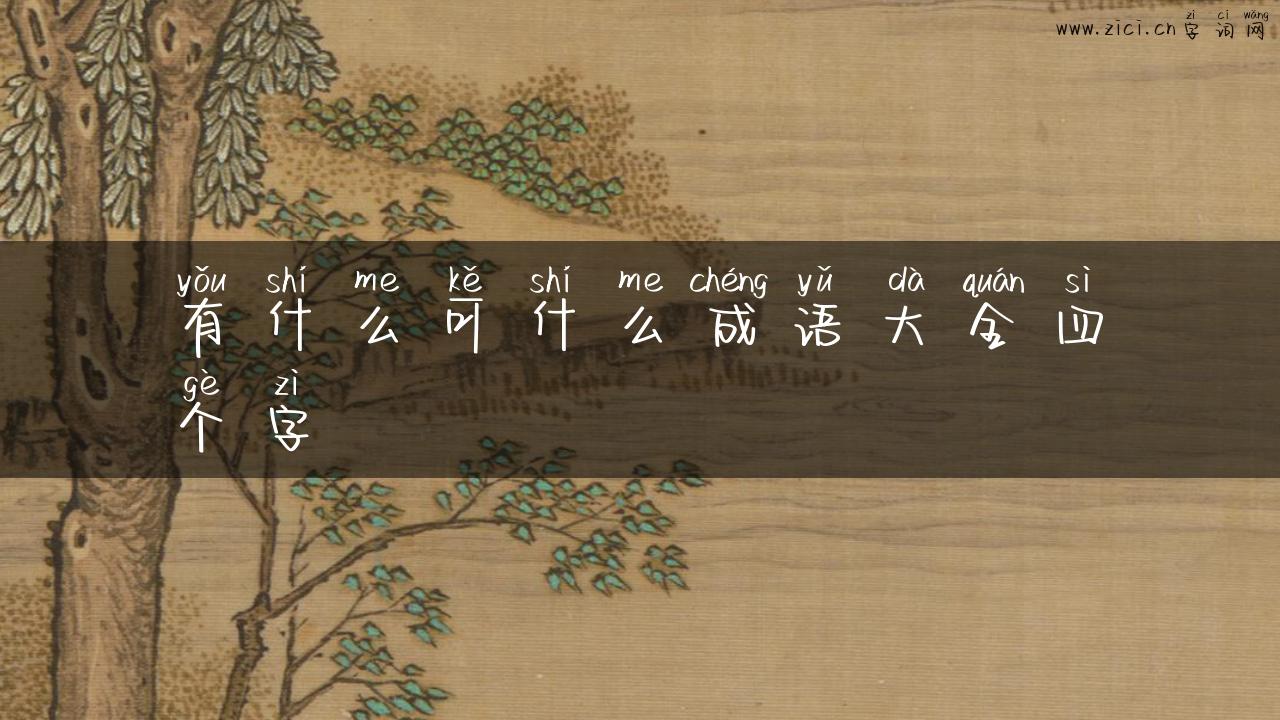 zì cí wǎng
www.zici.cn 字词网
yǒu shí me kě shí me chéng yǔ dà quán sì
有什么可什么成语大全四
gè zì
个字